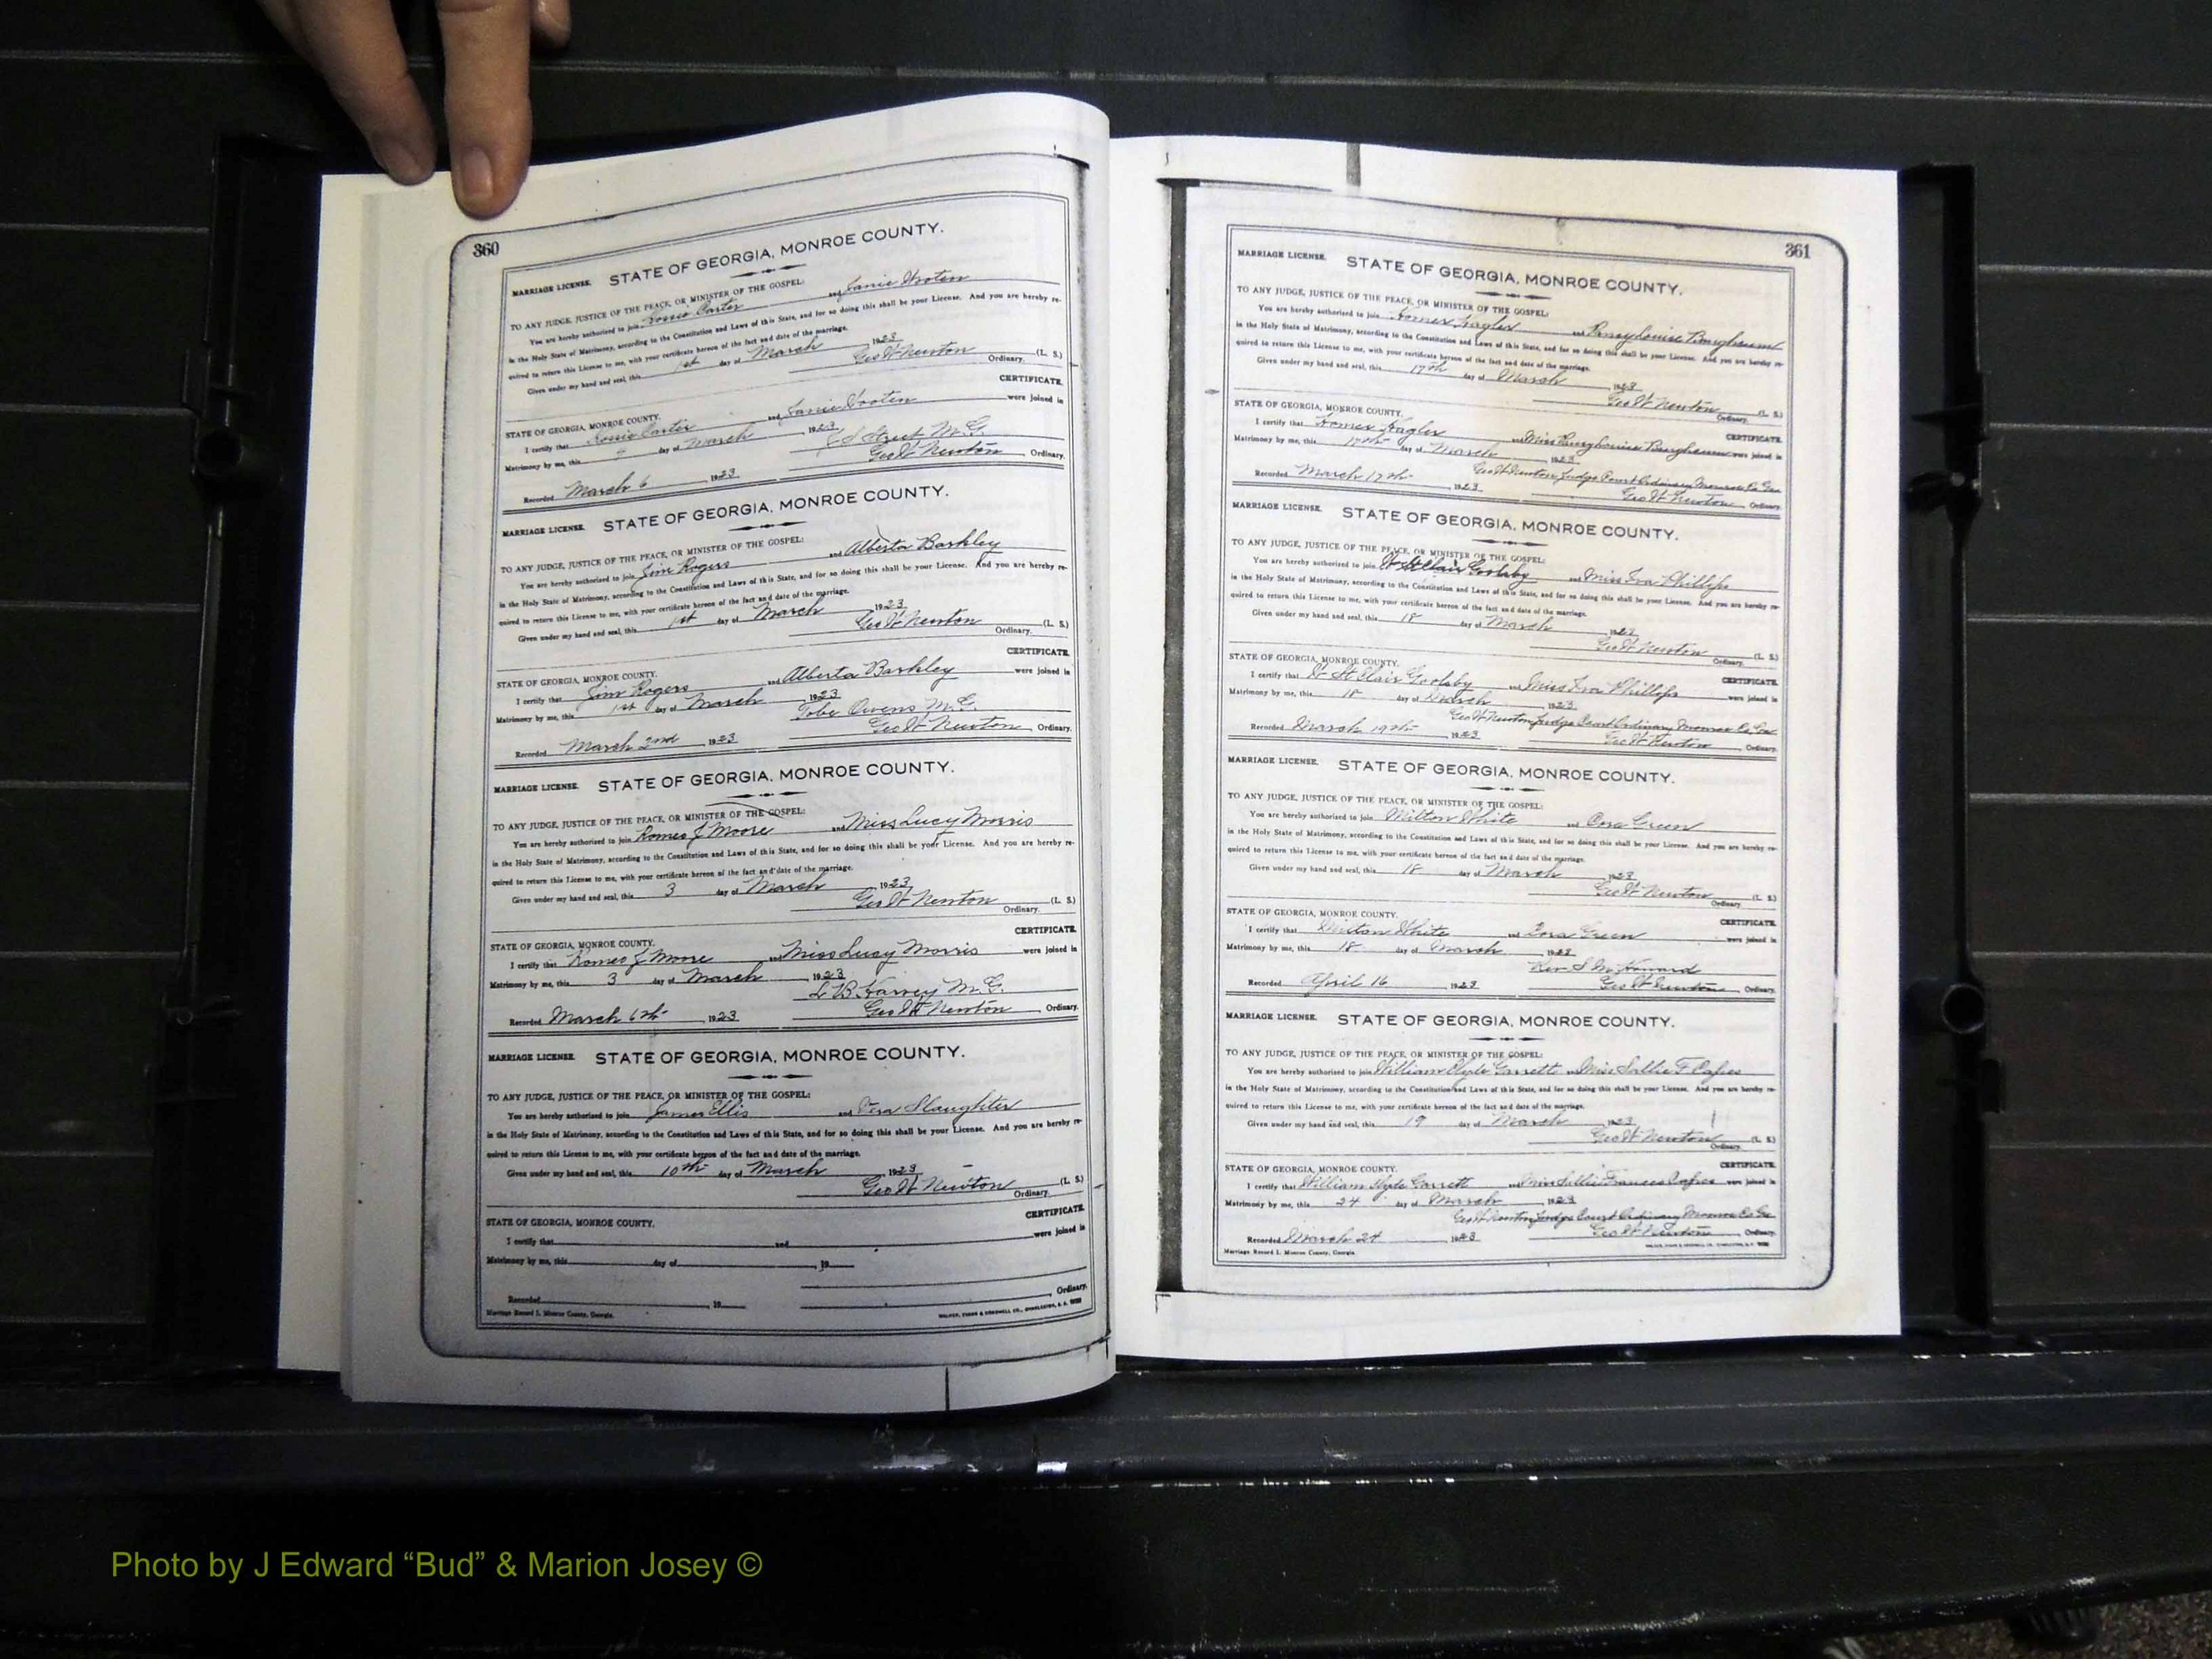 360
MARRIAGE LICENSE. STATE OF GEORGIA, MONROE COUNTY.
TO ANY JUDGE, JUSTICE OF THE PEACE, OR MINISTER OF THE GOSPEL:
You are hereby authorized to join Rossie Carter and Janie Wooten
in the Holy State of Matrimony, according to the Constitution and Laws of this State, and for so doing this shall be your License. And you are hereby re-
quired to return this License to me, with your certificate hereon of the fact and date of the marriage.
Given under my hand and seal, this 1st day of March 1923
Geo W Newton (L. S.)
Ordinary.
CERTIFICATE.
STATE OF GEORGIA, MONROE COUNTY.
I certify that Rossie Carter and Janie Wooten were joined in
Matrimony by me, this 4 day of March 1923
Street M. G.
Recorded March 6 1923 Geo W Newton Ordinary.
MARRIAGE LICENSE. STATE OF GEORGIA, MONROE COUNTY.
TO ANY JUDGE, JUSTICE OF THE PEACE, OR MINISTER OF THE GOSPEL:
You are hereby authorized to join Jim Rogers and Alberta Barkley
in the Holy State of Matrimony, according to the Constitution and Laws of this State, and for so doing this shall be your License. And you are hereby re-
quired to return this License to me, with your certificate hereon of the fact and date of the marriage.
Given under my hand and seal, this 1st day of March 1923
Geo W Newton (L. S.)
Ordinary.
CERTIFICATE.
STATE OF GEORGIA, MONROE COUNTY.
I certify that Jim Rogers and Alberta Barkley were joined in
Matrimony by me, this 1st day of March 1923
Tobe Owens M. G.
Recorded March 2nd 1923 Geo W Newton Ordinary.
MARRIAGE LICENSE. STATE OF GEORGIA, MONROE COUNTY.
TO ANY JUDGE, JUSTICE OF THE PEACE, OR MINISTER OF THE GOSPEL:
You are hereby authorized to join Romeo J Moore and Miss Lucy Morris
in the Holy State of Matrimony, according to the Constitution and Laws of this State, and for so doing this shall be your License. And you are hereby re-
quired to return this License to me, with your certificate hereon of the fact and date of the marriage.
Given under my hand and seal, this 3 day of March 1923
Geo W Newton (L. S.)
Ordinary.
CERTIFICATE.
STATE OF GEORGIA, MONROE COUNTY.
I certify that Romeo J Moore and Miss Lucy Morris were joined in
Matrimony by me, this 3 day of March 1923
L B Harvey M. G.
Recorded March 6th 1923 Geo W Newton Ordinary.
MARRIAGE LICENSE. STATE OF GEORGIA, MONROE COUNTY.
TO ANY JUDGE, JUSTICE OF THE PEACE, OR MINISTER OF THE GOSPEL:
You are hereby authorized to join James Ellis and Vera Slaughter
in the Holy State of Matrimony, according to the Constitution and Laws of this State, and for so doing this shall be your License. And you are hereby re-
quired to return this License to me, with your certificate hereon of the fact and date of the marriage.
Given under my hand and seal, this 10th day of March 1923
Geo W Newton (L. S.)
Ordinary.
CERTIFICATE.
STATE OF GEORGIA, MONROE COUNTY.
I certify that and were joined in
Matrimony by me, this day of 19
Recorded 19 Ordinary.
Marriage Record I. Monroe County, Georgia. WALKER, EVANS & COGSWELL CO., CHARLESTON, S. C.
361
MARRIAGE LICENSE. STATE OF GEORGIA, MONROE COUNTY.
TO ANY JUDGE, JUSTICE OF THE PEACE, OR MINISTER OF THE GOSPEL:
You are hereby authorized to join Homer Hagler and
in the Holy State of Matrimony, according to the Constitution and Laws of this State, and for so doing this shall be your License. And you are hereby re-
quired to return this License to me, with your certificate hereon of the fact and date of the marriage.
Given under my hand and seal, this 17th day of March 1923
Geo W Newton (L. S.)
Ordinary.
STATE OF GEORGIA, MONROE COUNTY.
CERTIFICATE.
I certify that Homer Hagler and Miss were joined in
Matrimony by me, this 17th day of March 1923
Geo W Newton Judge Court Ordinary Monroe Co Ga
Recorded March 17th 1923 Geo W Newton Ordinary.
MARRIAGE LICENSE. STATE OF GEORGIA, MONROE COUNTY.
TO ANY JUDGE, JUSTICE OF THE PEACE, OR MINISTER OF THE GOSPEL:
You are hereby authorized to join St Clair Goolsby and Miss Iva Phillips
in the Holy State of Matrimony, according to the Constitution and Laws of this State, and for so doing this shall be your License. And you are hereby re-
quired to return this License to me, with your certificate hereon of the fact and date of the marriage.
Given under my hand and seal, this 18 day of March 1923
Geo W Newton (L. S.)
Ordinary.
STATE OF GEORGIA, MONROE COUNTY.
CERTIFICATE.
I certify that St Clair Goolsby and Miss Iva Phillips were joined in
Matrimony by me, this 18 day of March 1923
Geo W Newton Judge Court Ordinary Monroe Co Ga
Recorded March 19th 1923 Geo W Newton Ordinary.
MARRIAGE LICENSE. STATE OF GEORGIA, MONROE COUNTY.
TO ANY JUDGE, JUSTICE OF THE PEACE, OR MINISTER OF THE GOSPEL:
You are hereby authorized to join Milton White and Cora Green
in the Holy State of Matrimony, according to the Constitution and Laws of this State, and for so doing this shall be your License. And you are hereby re-
quired to return this License to me, with your certificate hereon of the fact and date of the marriage.
Given under my hand and seal, this 18 day of March 1923
Geo W Newton (L. S.)
Ordinary.
STATE OF GEORGIA, MONROE COUNTY.
CERTIFICATE.
I certify that Milton White and Green were joined in
Matrimony by me, this 18 day of March 1923
Rev S M Howard
Recorded April 16 1923 Geo W Newton Ordinary.
MARRIAGE LICENSE. STATE OF GEORGIA, MONROE COUNTY.
TO ANY JUDGE, JUSTICE OF THE PEACE, OR MINISTER OF THE GOSPEL:
You are hereby authorized to join William Clyde Garrett and Miss Sallie F
in the Holy State of Matrimony, according to the Constitution and Laws of this State, and for so doing this shall be your License. And you are hereby re-
quired to return this License to me, with your certificate hereon of the fact and date of the marriage.
Given under my hand and seal, this 19 day of March 1923
Geo W Newton (L. S.)
Ordinary.
STATE OF GEORGIA, MONROE COUNTY.
CERTIFICATE.
I certify that William Clyde Garrett and Miss Sallie Frances were joined in
Matrimony by me, this 24 day of March 1923
Geo W Newton Judge Court Ordinary Monroe Co Ga
Recorded March 24 1923 Geo W Newton Ordinary.
Marriage Record I. Monroe County, Georgia.
Photo by J Edward “Bud” & Marion Josey ©